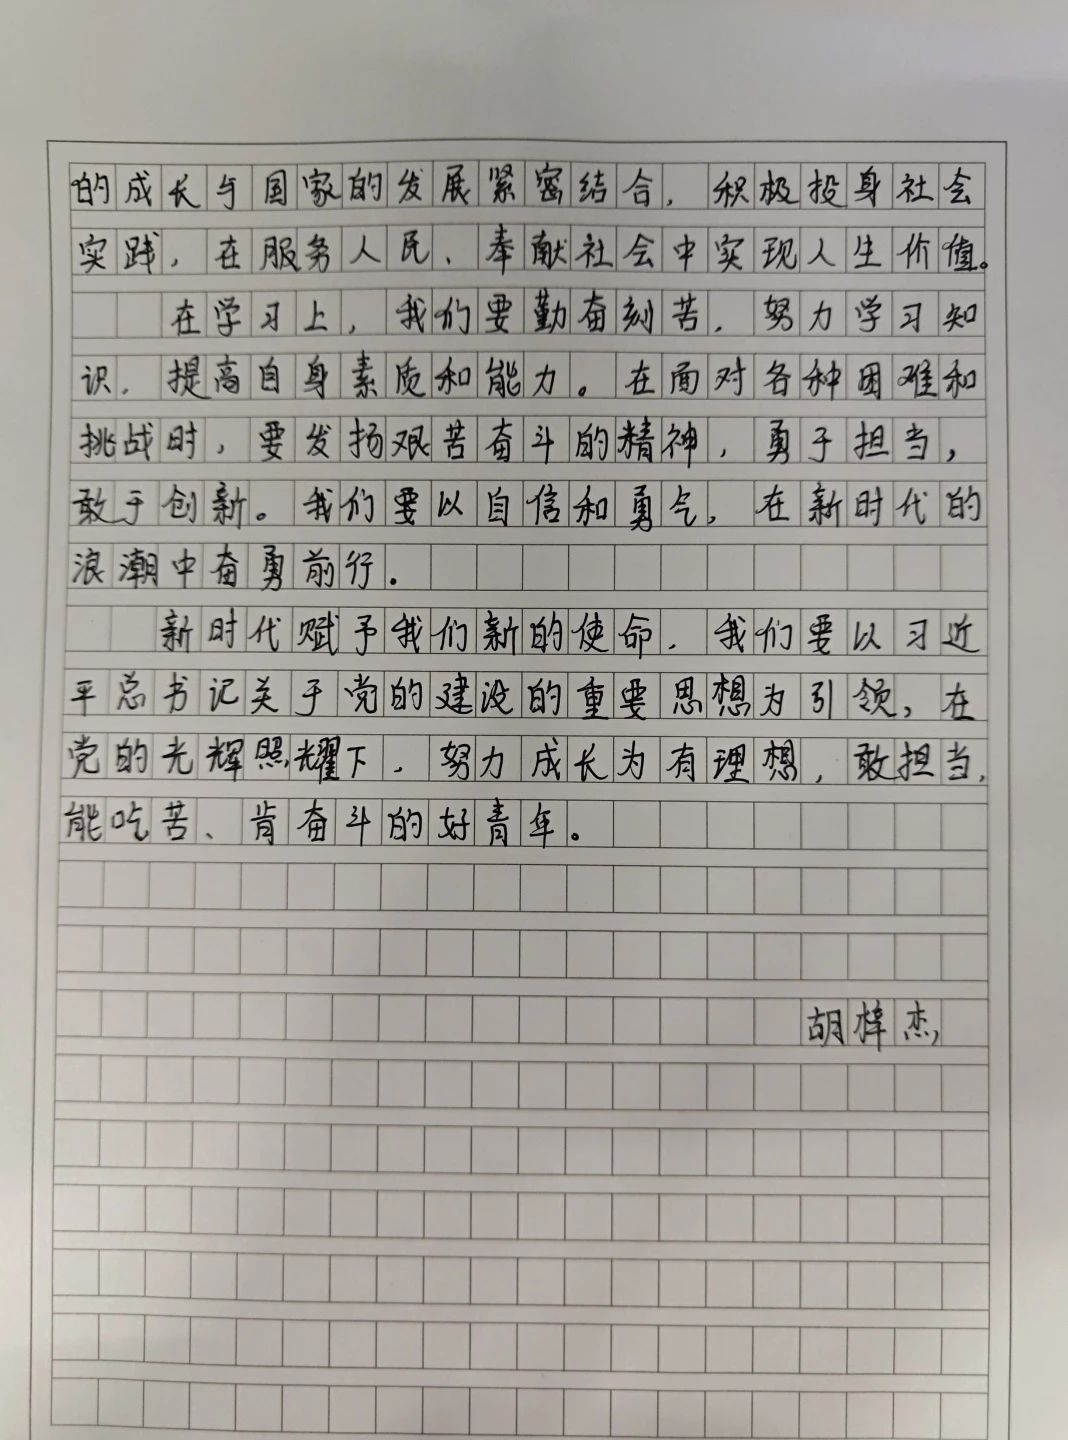 的成长与国家的发展紧密结合，积极投身社会
实践，在服务人民、奉献社会中实现人生价值。
在学习上，我们要勤奋刻苦，努力学习知
识，提高自身素质和能力。在面对各种困难和
挑战时，要发扬艰苦奋斗的精神，勇于担当，
敢于创新。我们要以自信和勇气，在新时代的
浪潮中奋勇前行。
新时代赋予我们新的使命，我们要以习近
平总书记关于党的建设的重要思想为引领，在
党的光辉照耀下，努力成长为有理想，敢担当，
能吃苦、肯奋斗的好青年。
胡梓杰